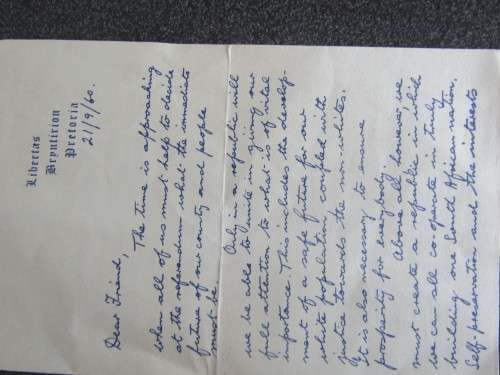 Libertas
Bryntirion
Pretoria
21/9/60.
Dear Friend,
The time is approaching
when all of us must help to decide
at the referendum what the immediate
future of our county and people
must be.
Only in a republic will
we be able to unite in giving our
full attention to what is of vital
importance. This includes the develop-
ment of a safe future for our
white population, coupled with
justice towards the non-whites.
It is also necessary to ensure
prosperity for everybody.
Above all, however, we
must create a republic in which
we can all co-operate in truly
building one South African nation.
Self preservation and the interests